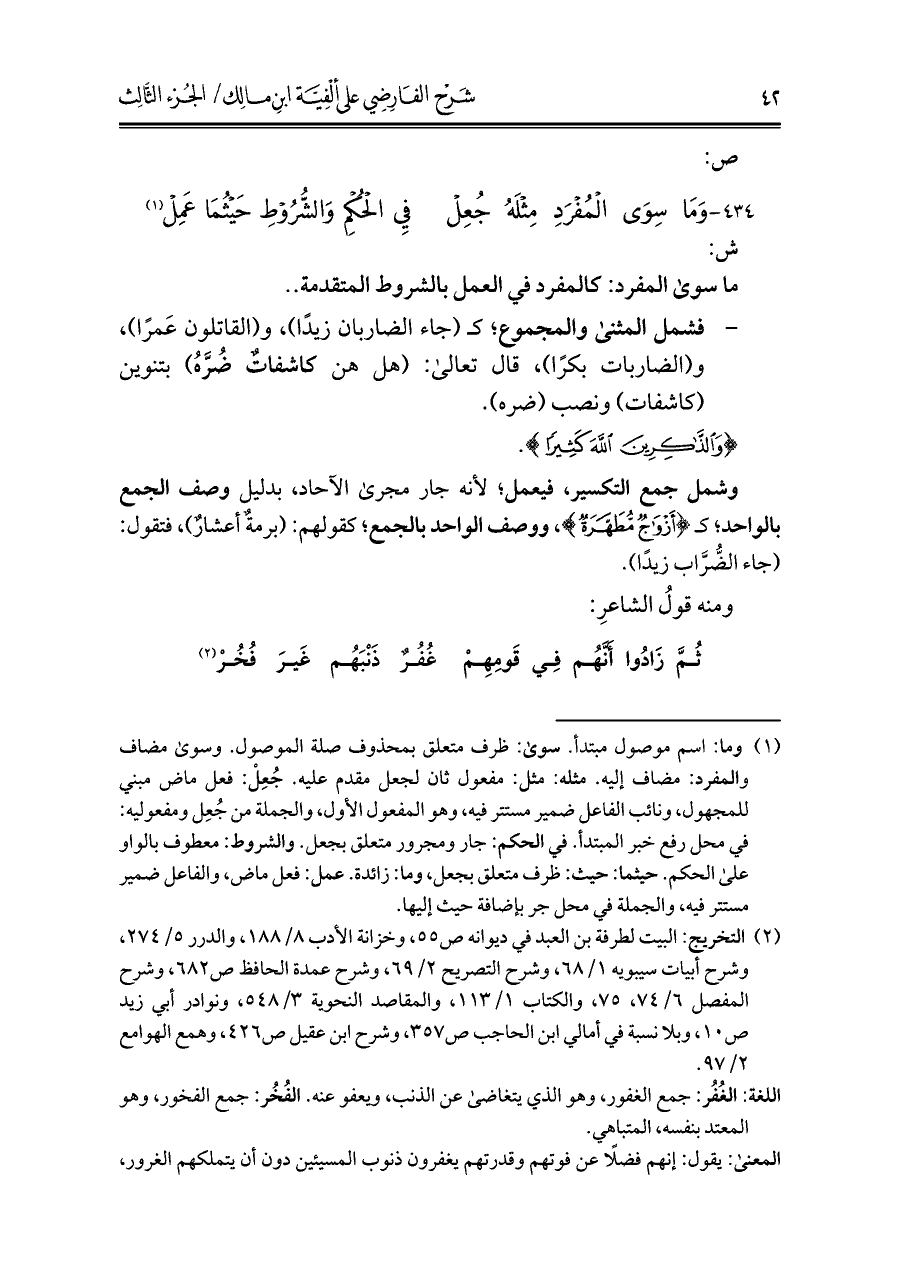 ٤٢ شَرْح الفَارِضِي على ألْفِيَّة ابنِ مَالِك/ الجُزء الثَّالِث
ص:
٤٣٤-وَمَا سِوَى الْمُفْرَدِ مِثْلَهُ جُعِلْ فِي الْحُكْمِ وَالشُّرُوْطِ حَيْثُمَا عَمِلْ(١)
ش:
ما سوىٰ المفرد: كالمفرد في العمل بالشروط المتقدمة..
- فشمل المثنىٰ والمجموع؛ كـ (جاء الضاربان زيدًا)، و(القاتلون عَمرًا)،
و(الضاربات بكرًا)، قال تعالىٰ: (هل هن كاشفاتٌ ضُرَّهُ) بتنوين
(كاشفات) ونصب (ضره).
﴿وَٱلذَّٰكِرِينَ ٱللَّهَ كَثِيرًا﴾.
وشمل جمع التكسير، فيعمل؛ لأنه جار مجرىٰ الآحاد، بدليل وصف الجمع
بالواحد؛ كـ ﴿أَزْوَٰجٌ مُّطَهَّرَةٌ﴾، ووصف الواحد بالجمع؛ كقولهم: (برمةٌ أعشارٌ)، فتقول:
(جاء الضُّرَّاب زيدًا).
ومنه قولُ الشاعرِ:
ثُـمَّ زَادُوا أَنَّهُـم فِـي قَومِهِـمْ غُفُـرٌ ذَنْبَهُـم غَيـرَ فُخُـرْ(٢)
(١) وما: اسم موصول مبتدأ. سوىٰ: ظرف متعلق بمحذوف صلة الموصول. وسوىٰ مضاف
والمفرد: مضاف إليه. مثله: مثل: مفعول ثان لجعل مقدم عليه. جُعِلْ: فعل ماض مبني
للمجهول، ونائب الفاعل ضمير مستتر فيه، وهو المفعول الأول، والجملة من جُعِل ومفعوليه:
في محل رفع خبر المبتدأ. في الحكم: جار ومجرور متعلق بجعل. والشروط: معطوف بالواو
علىٰ الحكم. حيثما: حيث: ظرف متعلق بجعل، وما: زائدة. عمل: فعل ماض، والفاعل ضمير
مستتر فيه، والجملة في محل جر بإضافة حيث إليها.
(٢) التخريج: البيت لطرفة بن العبد في ديوانه ص٥٥، وخزانة الأدب ٨/ ١٨٨، والدرر ٥/ ٢٧٤،
وشرح أبيات سيبويه ١/ ٦٨، وشرح التصريح ٢/ ٦٩، وشرح عمدة الحافظ ص٦٨٢، وشرح
المفصل ٦/ ٧٤، ٧٥، والكتاب ١/ ١١٣، والمقاصد النحوية ٣/ ٥٤٨، ونوادر أبي زيد
ص١٠، وبلا نسبة في أمالي ابن الحاجب ص٣٥٧، وشرح ابن عقيل ص٤٢٦، وهمع الهوامع
٢/ ٩٧.
اللغة: الغُفُر: جمع الغفور، وهو الذي يتغاضىٰ عن الذنب، ويعفو عنه. الفُخُر: جمع الفخور، وهو
المعتد بنفسه، المتباهي.
المعنىٰ: يقول: إنهم فضلًا عن قوتهم وقدرتهم يغفرون ذنوب المسيئين دون أن يتملكهم الغرور،